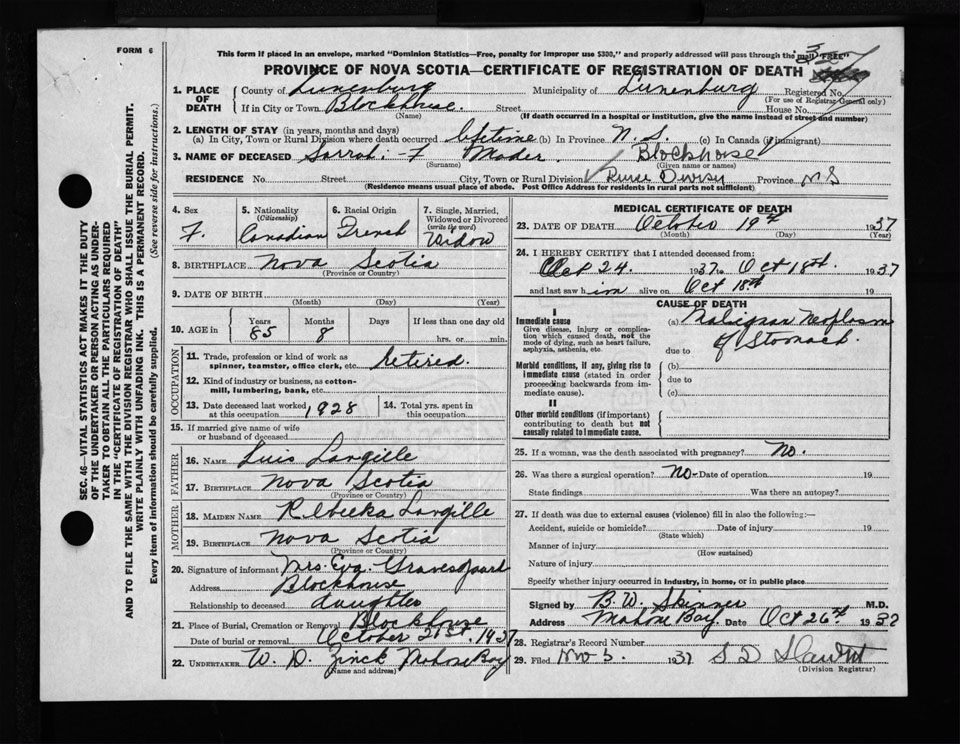 FORM 6
This form if placed in an envelope, marked "Dominion Statistics—Free, penalty for improper use $300," and properly addressed will pass through the mail "FREE"
PROVINCE OF NOVA SCOTIA—CERTIFICATE OF REGISTRATION OF DEATH
1. PLACE OF DEATH
County of Lunenburg Municipality of Lunenburg Registered No.
(For use of Registrar-General only)
If in City or Town Blockhouse. Street House No.
(Name) (If death occurred in a hospital or institution, give the name instead of street and number)
2. LENGTH OF STAY (in years, months and days)
(a) In City, Town or Rural Division where death occurred lifetime (b) In Province N.S. (c) In Canada (if immigrant)
3. NAME OF DECEASED Sarrah F Mader. Blockhouse
(Surname) (Given name or names)
RESIDENCE No. Street City, Town or Rural Division Province N S
(Residence means usual place of abode. Post Office Address for residents in rural parts not sufficient)
4. Sex
F.
5. Nationality (Citizenship)
Canadian
6. Racial Origin
French
7. Single, Married, Widowed or Divorced (write the word)
Widow
8. BIRTHPLACE Nova Scotia
(Province or Country)
9. DATE OF BIRTH
(Month) (Day) (Year)
10. AGE in
Years Months Days If less than one day old
85 8 hrs. or min.
OCCUPATION
11. Trade, profession or kind of work as spinner, teamster, office clerk, etc. retired.
12. Kind of industry or business, as cotton-mill, lumbering, bank, etc.
13. Date deceased last worked at this occupation 1928
14. Total yrs. spent in this occupation
15. If married give name of wife or husband of deceased
FATHER
16. NAME Luis Langille
17. BIRTHPLACE Nova Scotia
(Province or Country)
MOTHER
18. MAIDEN NAME Rebecka Langille
19. BIRTHPLACE Nova Scotia
(Province or Country)
20. Signature of informant Mrs. Eva Gravesgaard
Address Blockhouse
Relationship to deceased daughter
21. Place of Burial, Cremation or Removal Blockhouse
Date of burial or removal October 21st. 1937
22. UNDERTAKER W. D. Zinck Mahone Bay
(Name and address)
MEDICAL CERTIFICATE OF DEATH
23. DATE OF DEATH October 19th 1937
(Month) (Day) (Year)
24. I HEREBY CERTIFY that I attended deceased from:
Oct 24. 1937 to Oct 18th. 1937
and last saw him alive on Oct 18th 19
CAUSE OF DEATH
I
Immediate cause
Give disease, injury or complication which caused death, not the mode of dying, such as heart failure, asphyxia, asthenia, etc.
(a) Malignar Neoplasm
of Stomach.
due to
Morbid conditions, if any, giving rise to immediate cause (stated in order proceeding backwards from immediate cause).
(b)
due to
(c)
II
Other morbid conditions (if important) contributing to death but not causally related to immediate cause.
25. If a woman, was the death associated with pregnancy? No.
26. Was there a surgical operation? No Date of operation 19
State findings Was there an autopsy?
27. If death was due to external causes (violence) fill in also the following:—
Accident, suicide or homicide? Date of injury 19
(State which)
Manner of injury
(How sustained)
Nature of injury
Specify whether injury occurred in industry, in home, or in public place
Signed by B. W. Skinner M.D.
Address Mahone Bay. Date Oct 26th 19
28. Registrar's Record Number
29. Filed Nov 3. 1937
(Division Registrar)
SEC. 46—VITAL STATISTICS ACT MAKES IT THE DUTY
OF THE UNDERTAKER OR PERSON ACTING AS UNDER-
TAKER TO OBTAIN ALL THE PARTICULARS REQUIRED
IN THE "CERTIFICATE OF REGISTRATION OF DEATH"
AND TO FILE THE SAME WITH THE DIVISION REGISTRAR WHO SHALL ISSUE THE BURIAL PERMIT.
WRITE PLAINLY WITH UNFADING INK. THIS IS A PERMANENT RECORD.
Every item of information should be carefully supplied. (See reverse side for instructions.)